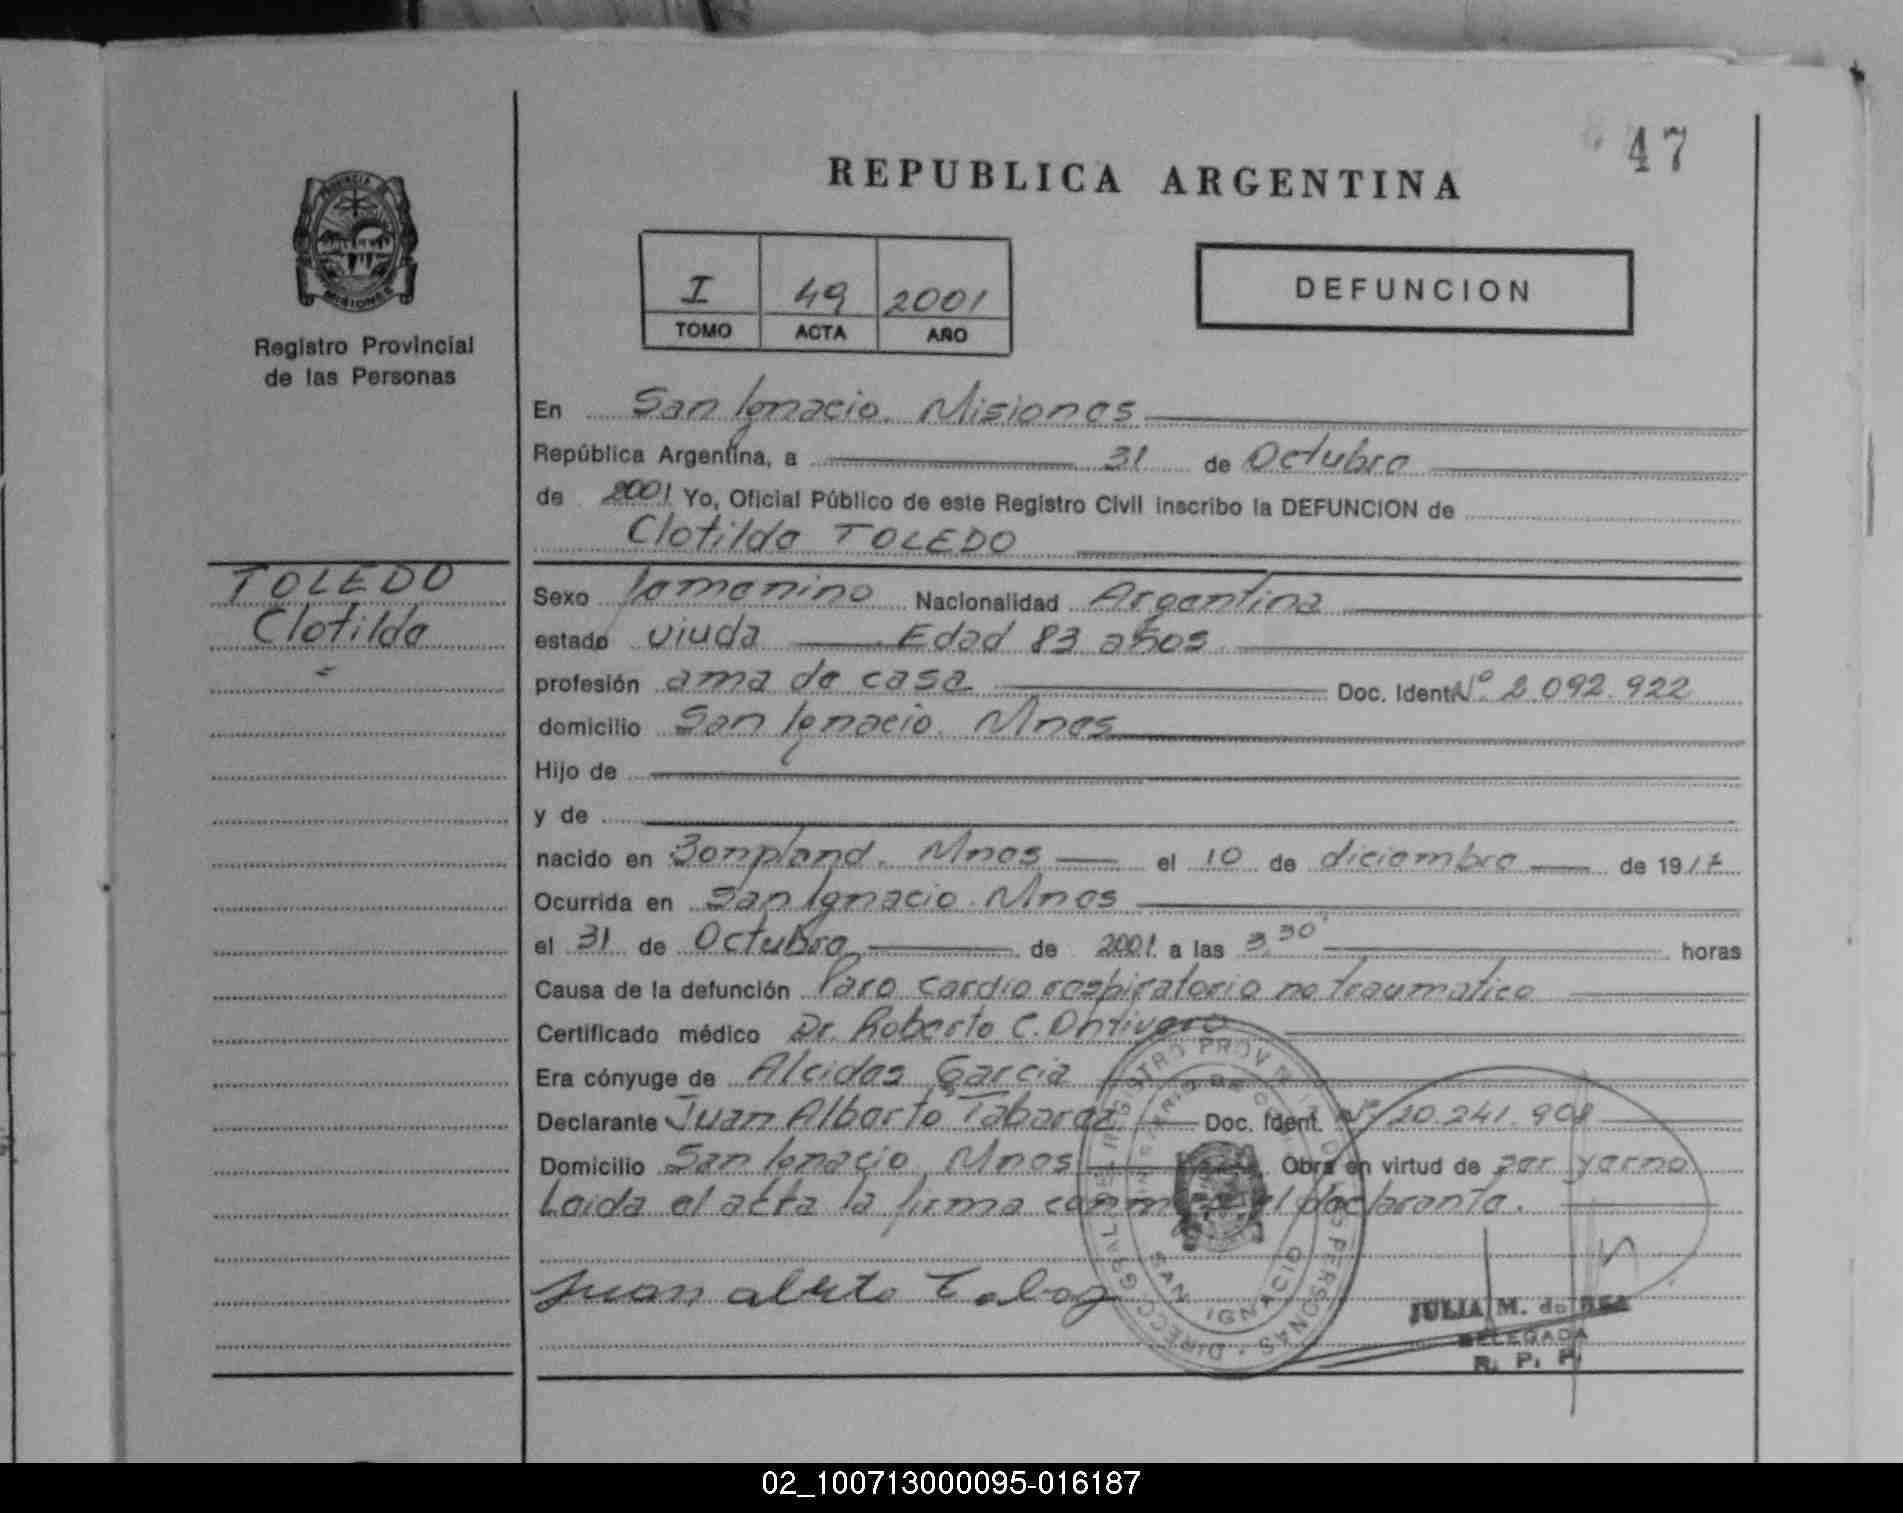 47
REPUBLICA ARGENTINA
PROVINCIA DE
MISIONES
Registro Provincial
de las Personas
I 49 2001
TOMO ACTA AÑO
DEFUNCION
En San Ignacio. Misiones
República Argentina, a 31 de Octubre
de 2001 Yo, Oficial Público de este Registro Civil inscribo la DEFUNCION de
Clotilde TOLEDO
TOLEDO
Clotilde
Sexo femenino Nacionalidad Argentina
estado viuda Edad 83 años
profesión ama de casa Doc. Ident. Nº 2.092.922
domicilio San Ignacio. Mnes
Hijo de
y de
nacido en Bonpland. Mnes el 10 de diciembre de 1917
Ocurrida en San Ignacio. Mnes
el 31 de Octubre de 2001 a las 3,30 horas
Causa de la defunción Paro cardio respiratorio no traumatico
Certificado médico Dr. Roberto C. Ontivero
Era cónyuge de Alcides Garcia
Declarante Juan Alberto Doc. Ident. Nº 20.241.908
Domicilio San Ignacio, Mnes Obra en virtud de ser yerno
Leida el acta la firma conmigo el declarante.
Juan alberto
SAN IGNACIO
JULIA M. de
DELEGADA
R. P. P.
02_100713000095-016187